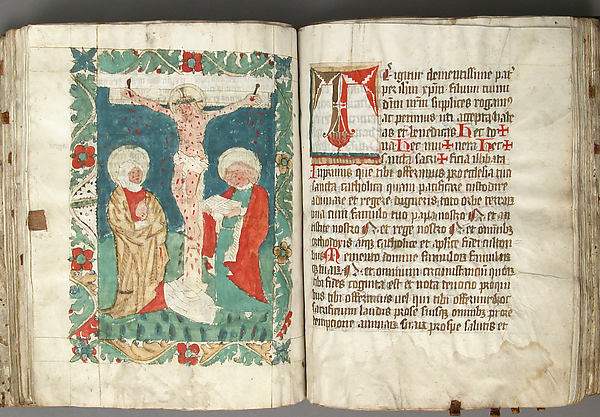 T E igitur clementissime pat̄
per ih̄m xp̄m filium tuum
dn̄m nr̄m suplices rogam⁹
ac petimus uti accepta habe
as et benedicas Hec do✚
na Hec mu✚nera Hec✚
sancta sacri✚ficia illibata
Inprimis que tibi offerimus pro ecclesia tua
sancta catholica quam pacificare custodire
adunare et regere digneris toto orbe terrarꝝ
una cum famulo tuo papa nostro N et an
tistite nostro N et rege nostro N et omībus
orthodoxis atqꝫ catholice et aplice fidei cultori
bus Memento domine famuloꝝ famularꝝ
qꝫ tuaꝝ N et omnium circumstanciū quoꝝ
tibi fides cognita est et nota devocio pro qui
bus tibi offerimus uel qui tibi offerūt hoc
sacrificium laudis pro se suisqꝫ omnibꝫ pro re
demptione animaꝝ suaꝝ pro spe salutis et